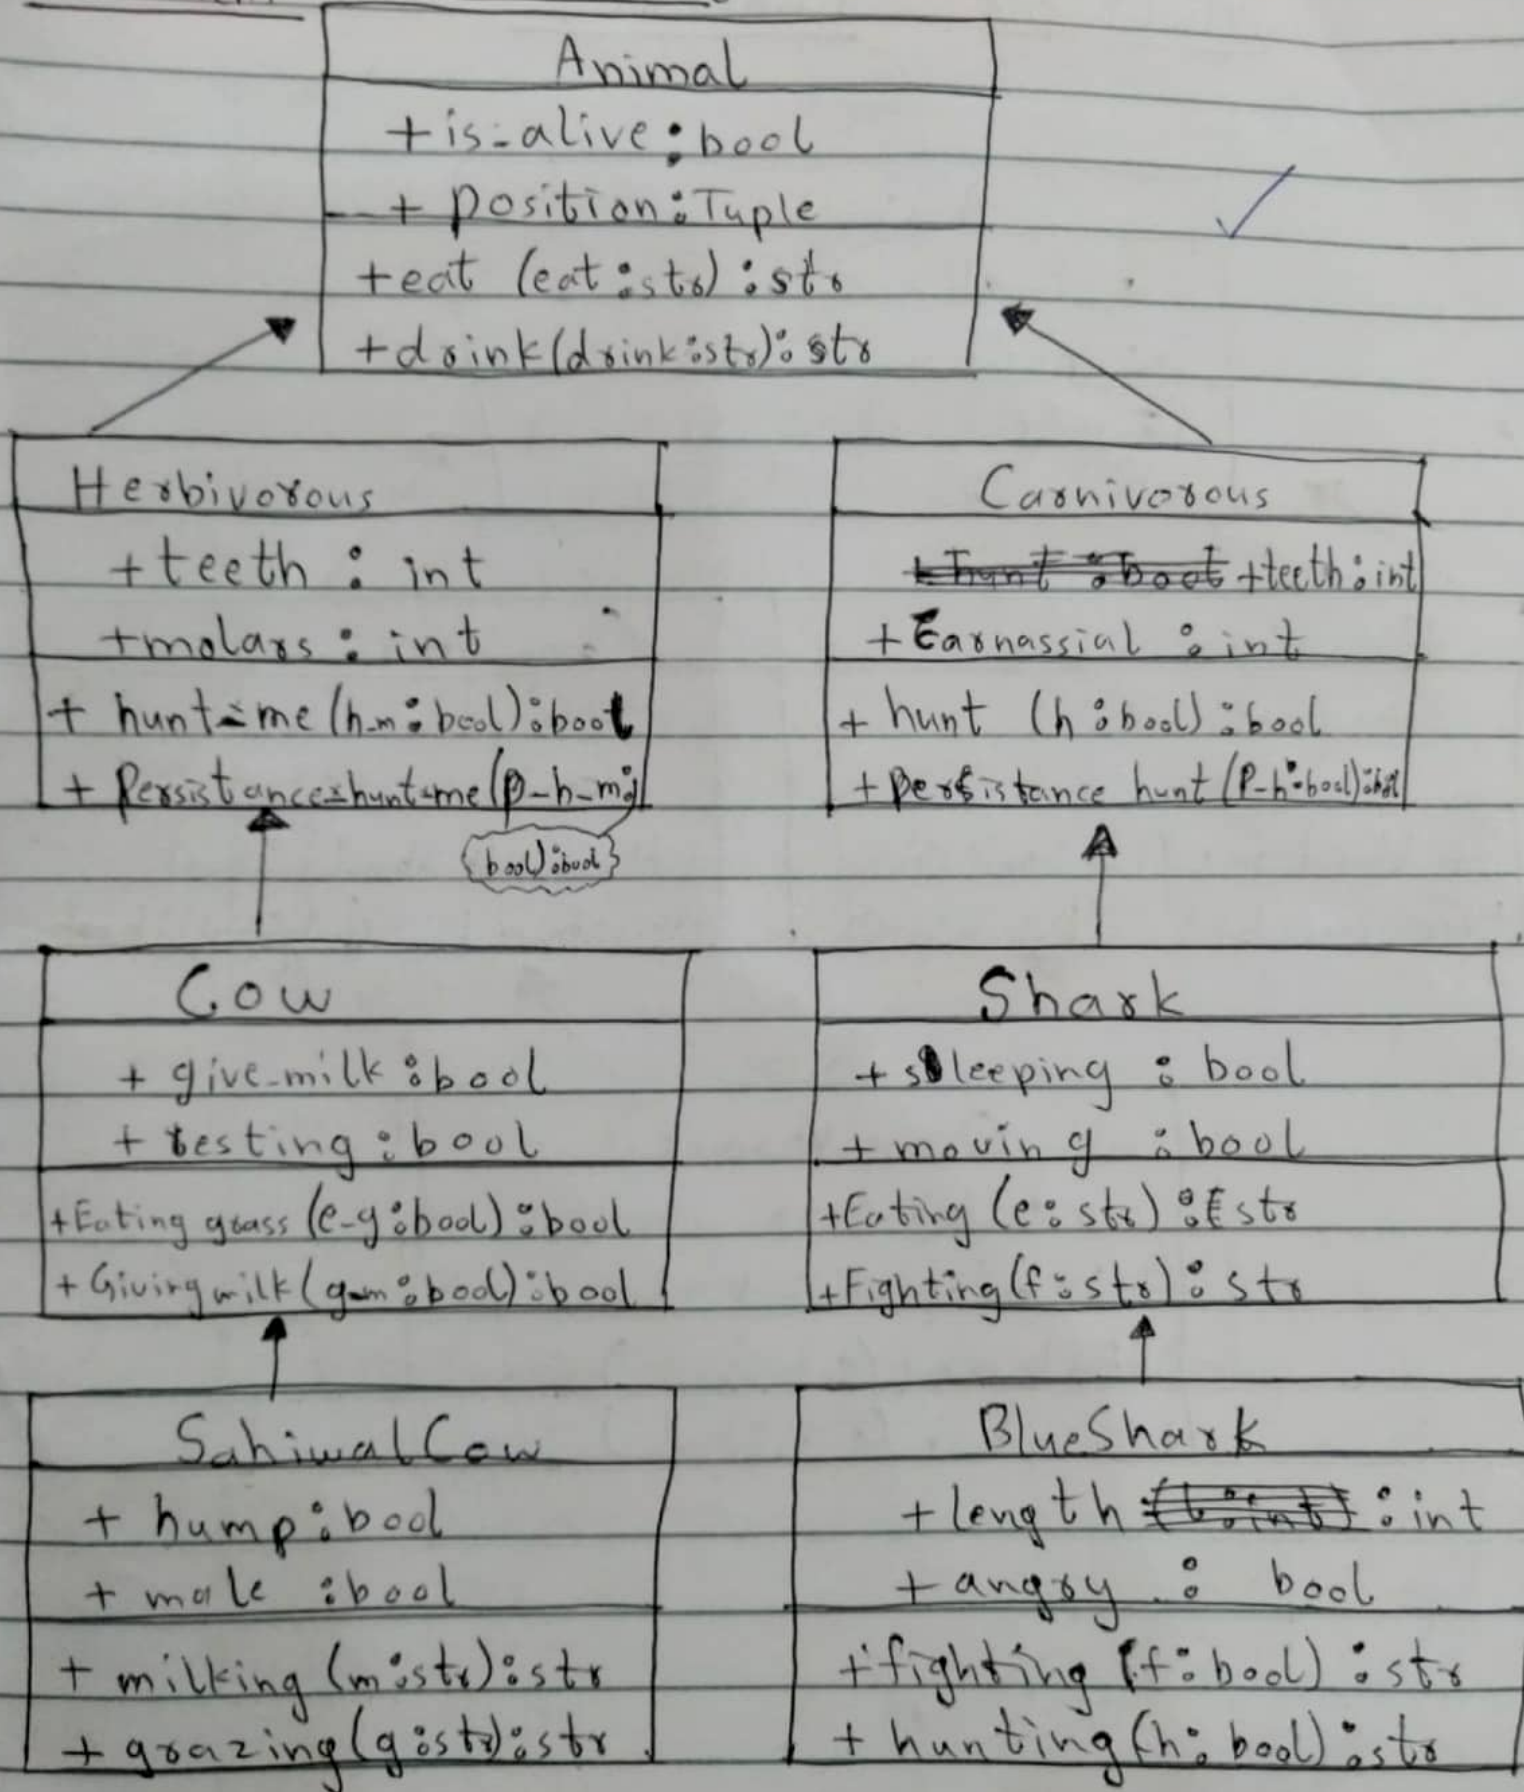 Animal
+ is_alive : bool
+ position : Tuple
+ eat (eat : str) : str
+ drink (drink : str) : str
Herbivorous
+ teeth : int
+ molars : int
+ hunt_me (h_m : bool) : bool
+ Persistance_hunt_me (p_h_m :
bool) : bool
Carnivorous
+ teeth : int
+ Carnassial : int
+ hunt (h : bool) : bool
+ persistance hunt (P_h : bool) : bool
Cow
+ give_milk : bool
+ resting : bool
+ Eating grass (e_g : bool) : bool
+ Giving milk (g_m : bool) : bool
Shark
+ sleeping : bool
+ moving : bool
+ Eating (e : str) : str
+ Fighting (f : str) : str
SahiwalCow
+ hump : bool
+ male : bool
+ milking (m : str) : str
+ grazing (g : str) : str
BlueShark
+ length : int
+ angry : bool
+ fighting (f : bool) : str
+ hunting (h : bool) : str